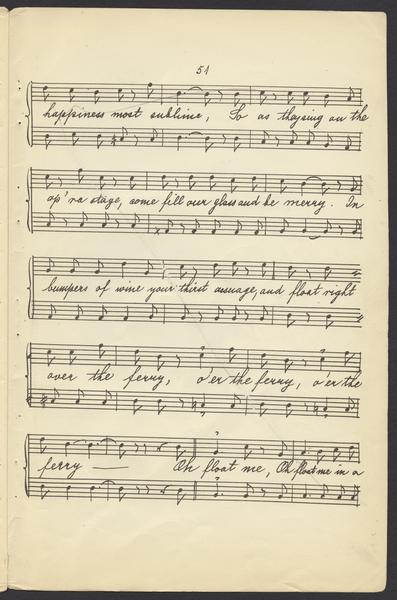 51
happiness most sublime, So as they sing on the
op'ra stage, come fill over glass and be merry. In
bumpers of wine your thirst assuage, and float right
over the ferry, o'er the ferry, o'er the
ferry — Oh float me, Oh float me in a